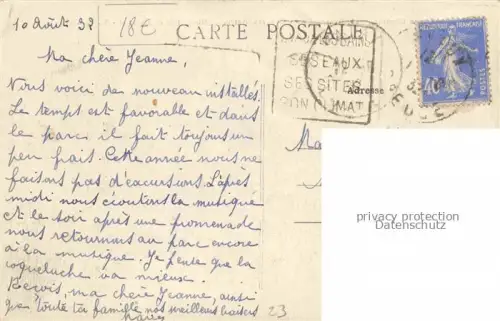 10 Août 32
18€
CARTE POSTALE
Ma chère Jeanne,
Nous voici de nouveau installés.
Le temps est favorable et dans
le parc il fait toujours un
peu frais. Cette année nous ne
faisons pas d'excursions. L'après
midi nous écoutons la musique
et le soir après une promenade
nous retournons au parc encore
à la musique. Je pense que la
coqueluche va mieux.
Reçois, ma chère Jeanne, ainsi
que toute ta famille nos meilleurs baisers
SES EAUX
SES SITES
SON CLIMAT
Adresse
Ma
40
POSTES
privacy protection
Datenschutz
23